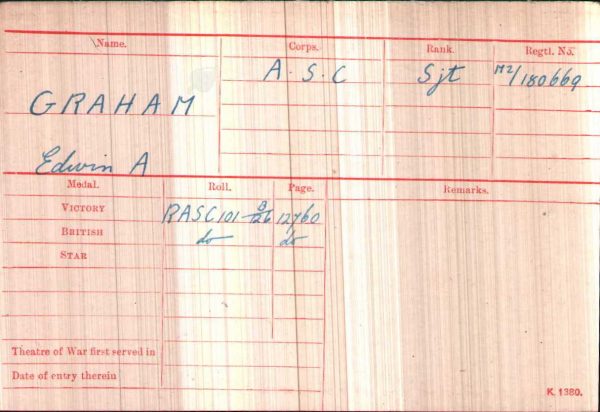 Name. Corps. Rank. Regtl. No.
A.S.C Sjt M2/180669
GRAHAM
Edwin A
Medal. Roll. Page. Remarks.
VICTORY RASC 101 B/126 12760
BRITISH do do
STAR
Theatre of War first served in
Date of entry therein
K. 1380.